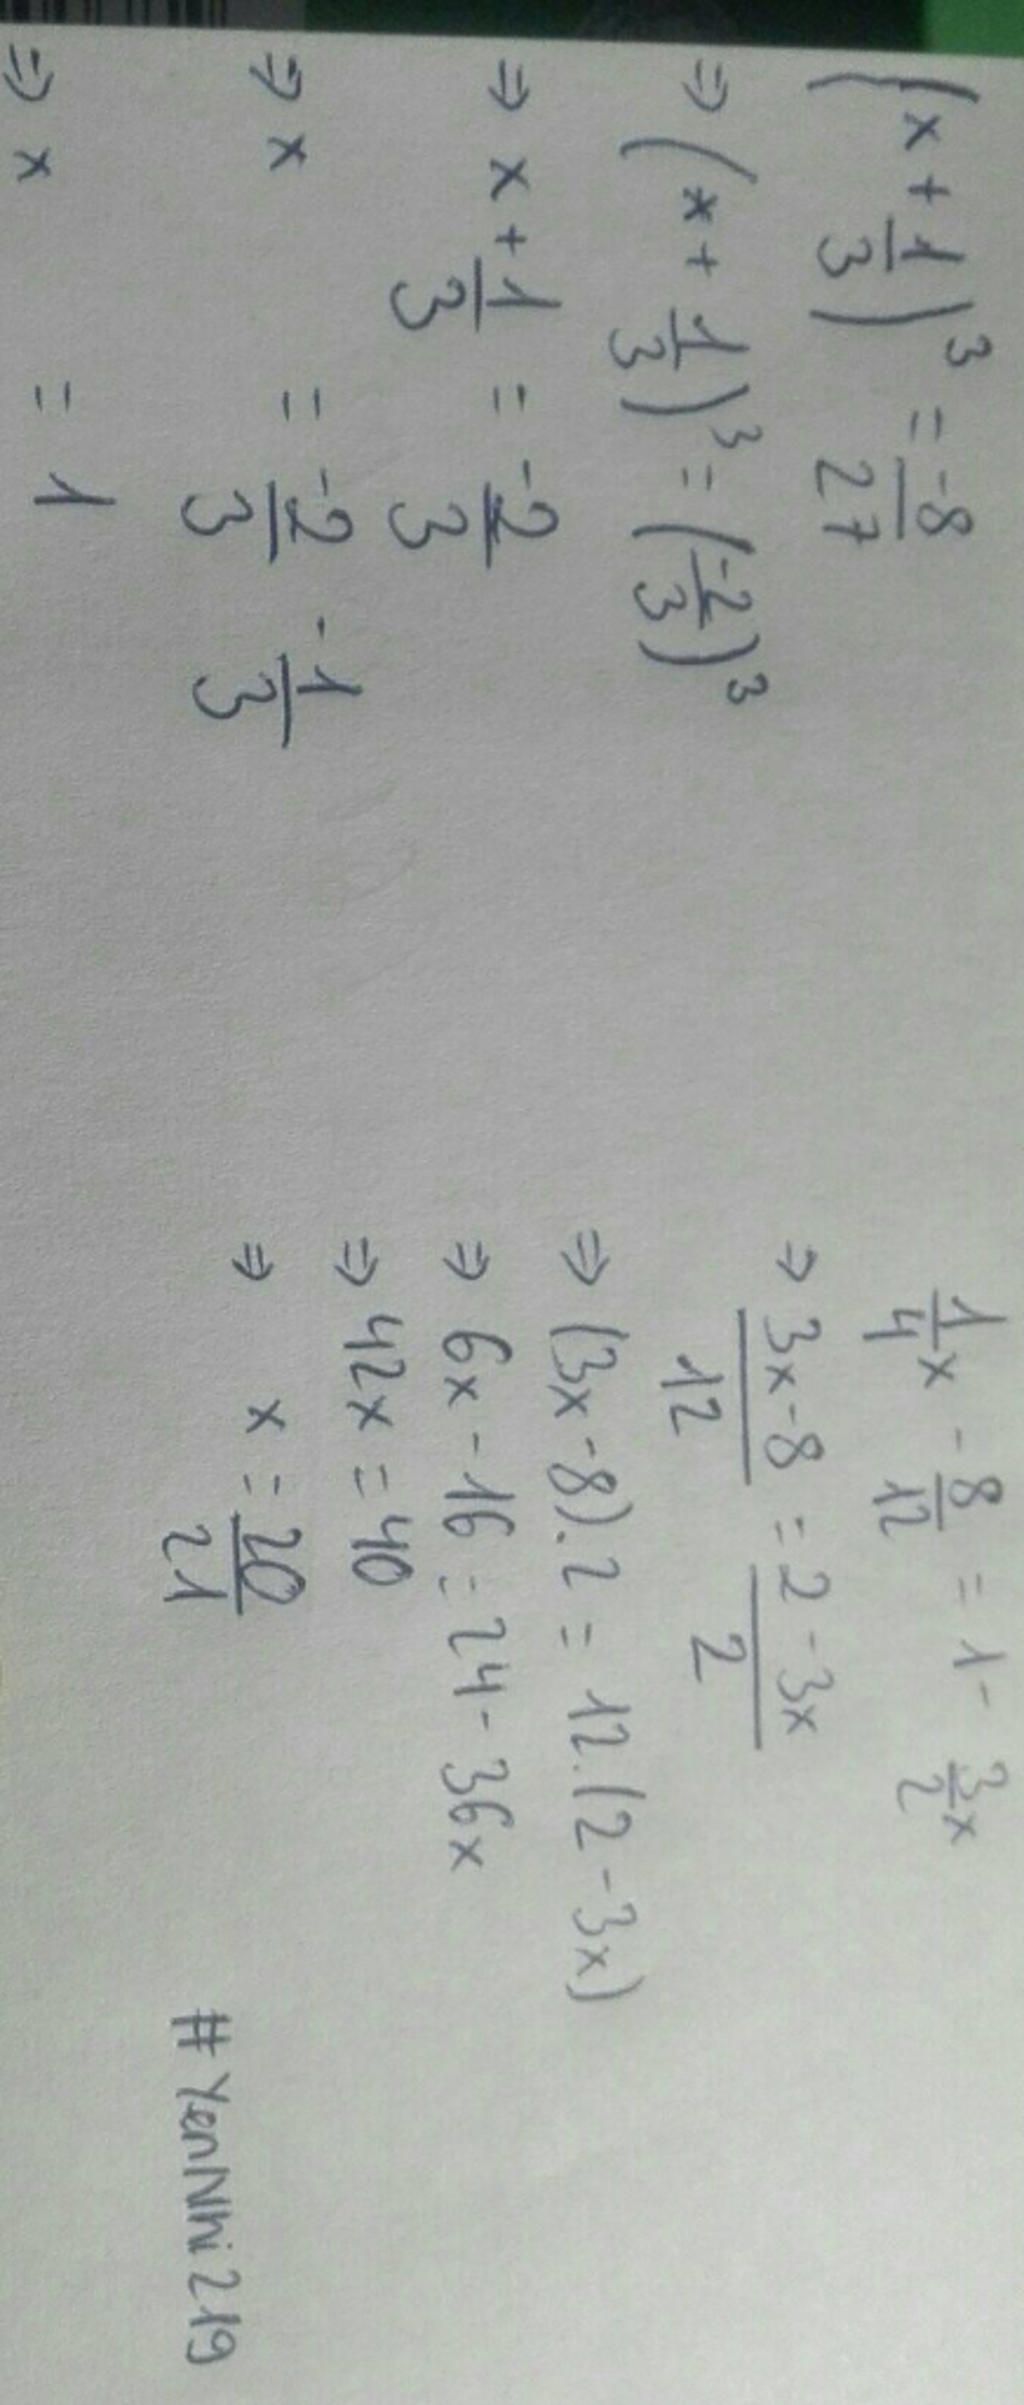 (x + 1/3)³ = -8/27
⇒ (x + 1/3)³ = (-2/3)³
⇒ x + 1/3 = -2/3
⇒ x = -2/3 - 1/3
⇒ x = 1
1/4 x - 8/12 = 1 - 3/2 x
⇒ 3x-8/12 = 2-3x/2
⇒ (3x-8).2 = 12.(2-3x)
⇒ 6x - 16 = 24 - 36x
⇒ 42x = 40
⇒ x = 20/21
# YenNhi219